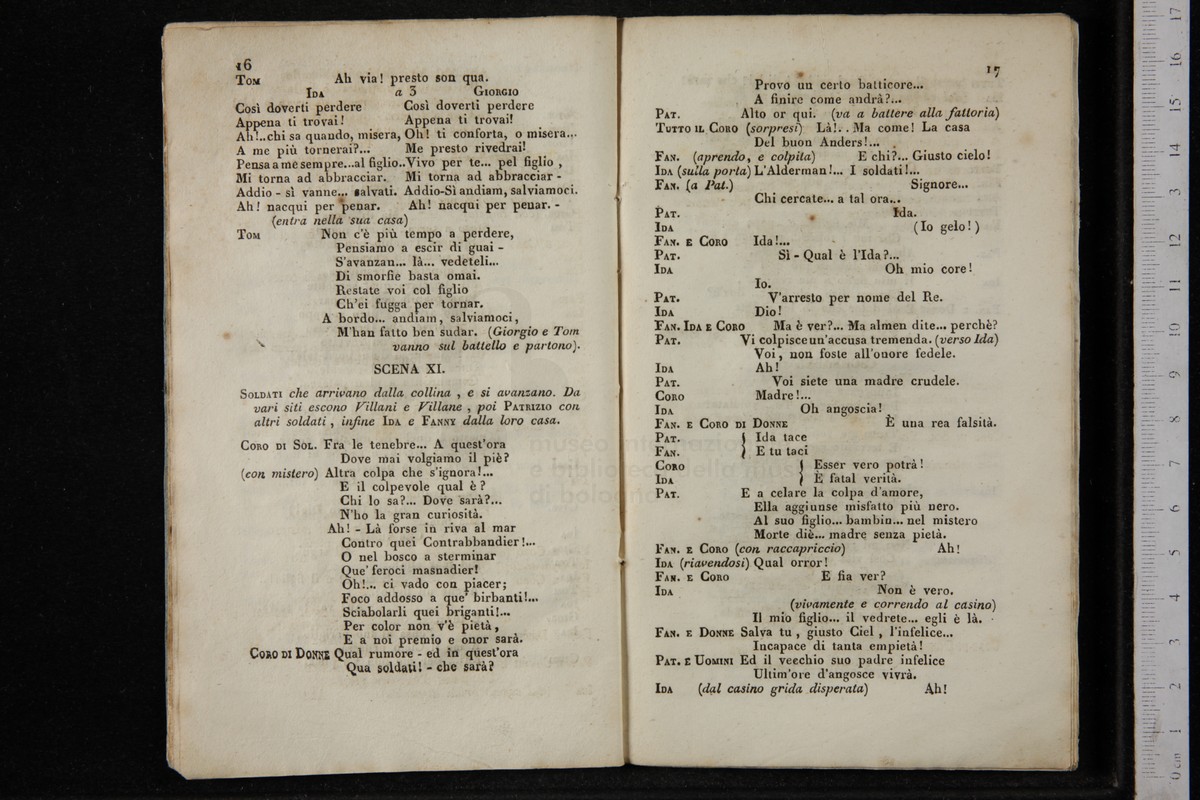 16
Tom Ah via! presto son qua.
Ida a 3 Giorgio
Così doverti perdere Così doverti perdere
Appena ti trovai! Appena ti trovai!
Ah!..chi sa quando, misera, Oh! ti conforta, o misera...
A me più tornerai?... Me presto rivedrai!
Pensa a me sempre...al figlio.. Vivo per te... pel figlio ,
Mi torna ad abbracciar. Mi torna ad abbracciar -
Addio - sì vanne... salvati. Addio-Sì andiam, salviamoci.
Ah! nacqui per penar. Ah! nacqui per penar. -
(entra nella sua casa)
Tom Non c'è più tempo a perdere,
Pensiamo a escir di guai -
S'avanzan... là... vedeteli...
Di smorfie basta omai.
Restate voi col figlio
Ch'ei fugga per tornar.
A bordo... andiam, salviamoci,
M'han fatto ben sudar. (Giorgio e Tom
vanno sul battello e partono).
SCENA XI.
Soldati che arrivano dalla collina , e si avanzano. Da
vari siti escono Villani e Villane , poi Patrizio con
altri soldati , infine Ida e Fanny dalla loro casa.
Coro di Sol. Fra le tenebre... A quest'ora
Dove mai volgiamo il piè?
(con mistero) Altra colpa che s'ignora!...
E il colpevole qual è ?
Chi lo sa?... Dove sarà?...
N'ho la gran curiosità.
Ah! - Là forse in riva al mar
Contro quei Contrabbandier!...
O nel bosco a sterminar
Que' feroci masnadier!
Oh!... ci vado con piacer;
Foco addosso a que' birbanti!...
Sciabolarli quei briganti!...
Per color non v'è pietà ,
E a noi premio e onor sarà.
Coro di Donne Qual rumore - ed in quest'ora
Qua soldati! - che sarà?
17
Provo un certo batticore...
A finire come andrà?...
Pat. Alto or qui. (va a battere alla fattoria)
Tutto il Coro (sorpresi) Là!. . Ma come! La casa
Del buon Anders!...
Fan. (aprendo, e colpita) E chi?... Giusto cielo!
Ida (sulla porta) L'Alderman!... I soldati!...
Fan. (a Pat.) Signore...
Chi cercate... a tal ora...
Pat. Ida.
Ida (Io gelo!)
Fan. e Coro Ida!...
Pat. Sì - Qual è l'Ida?...
Ida Oh mio core!
Io.
Pat. V'arresto per nome del Re.
Ida Dio!
Fan. Ida e Coro Ma è ver?... Ma almen dite... perchè?
Pat. Vi colpisce un'accusa tremenda. (verso Ida)
Voi, non foste all'onore fedele.
Ida Ah!
Pat. Voi siete una madre crudele.
Coro Madre!...
Ida Oh angoscia!
Fan. e Coro di Donne È una rea falsità.
Pat. { Ida tace
Fan. { E tu taci
Coro { Esser vero potrà!
Ida { È fatal verità.
Pat. E a celare la colpa d'amore,
Ella aggiunse misfatto più nero.
Al suo figlio... bambin... nel mistero
Morte diè... madre senza pietà.
Fan. e Coro (con raccapriccio) Ah!
Ida (riavendosi) Qual orror!
Fan. e Coro E fia ver?
Ida Non è vero.
(vivamente e correndo al casino)
Il mio figlio... il vedrete... egli è là.
Fan. e Donne Salva tu , giusto Ciel , l'infelice...
Incapace di tanta empietà!
Pat. e Uomini Ed il vecchio suo padre infelice
Ultim'ore d'angosce vivrà.
Ida (dal casino grida disperata) Ah!